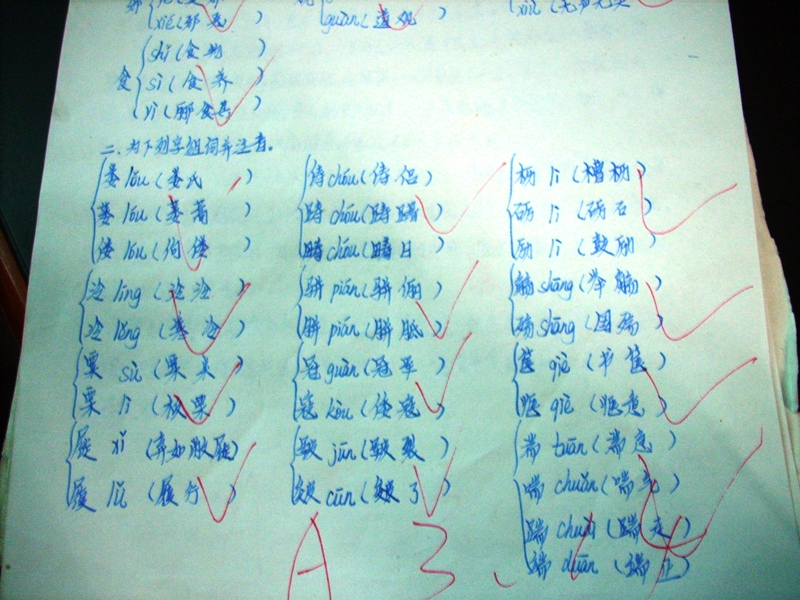 guàn(道观)
食 shí(食物)
sì(食养)
yì(郦食其)
二.为下列字组词并注音。
娄 lóu(娄氏)
蒌 lóu(蒌蒿)
偻 lóu(佝偻)
俦 chóu(俦侣)
踌 chóu(踌躇)
畴 chóu(畴日
lì(
砺 lì(砺石)
励 lì(鼓励)
泠 líng(泠泠)
冷 lěng(寒冷)
骈 pián(骈俪)
胼 pián(胼胝)
觞 shāng(举觞)
殇 shāng(国殇)
粟 sù(粟米)
栗 lì(板栗)
冠 guàn(冠军)
寇 kòu(倭寇)
箧 qiè(书箧)
惬 qiè(惬意)
屣 xǐ(弃如敝屣)
履 lǚ(履行)
皲 jūn(皲裂)
皴 cūn(皴了)
湍 tuān(湍急)
喘 chuǎn(喘息)
端 duān(端正)
A 3.